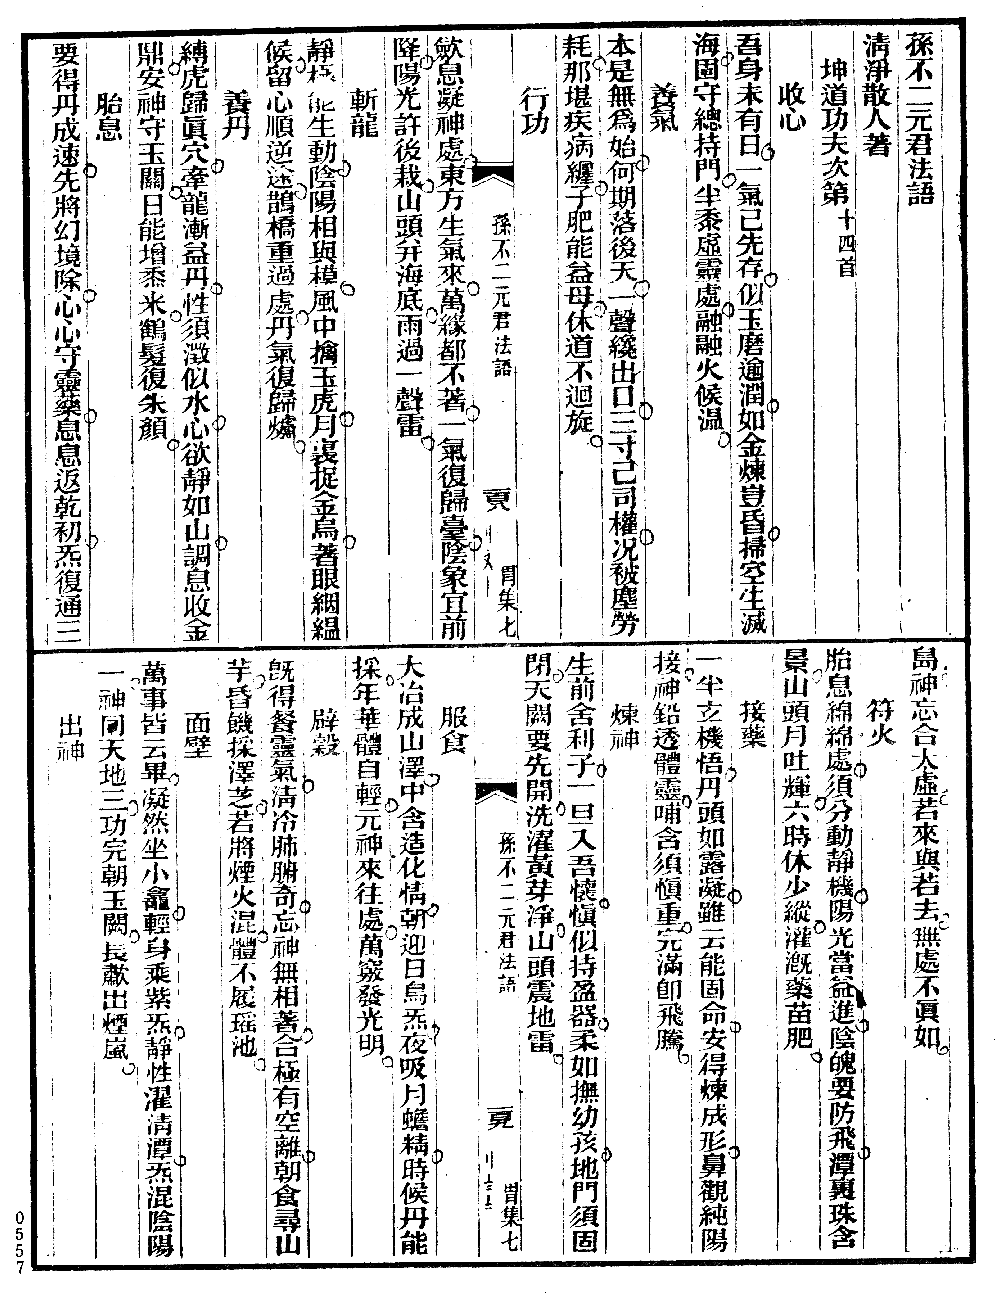 孫不二元君法語
清淨散人著
坤道功夫次第十四首
收心
吾身未有日一氣已先存似玉磨逾潤如金煉豈昏掃空生滅
海固守總持門半黍虛靈處融融火候温
養氣
本是無爲始何期落後天一聲纔出口三寸已司權况被塵勞
耗那堪疾病纏子肥能益母休道不迴旋
行功
孫不二元君法語
胃集七
歛息凝神處東方生氣來萬緣都不著一氣復歸臺陰象宜前
降陽光許後栽山頭并海底雨過一聲雷
斬龍
靜極能生動陰陽相與模風中擒玉虎月裏捉金烏著眼絪緼
候留心順逆途鵲橋重過處丹氣復歸爐
養丹
縛虎歸眞穴牽龍漸益丹性須澂似水心欲靜如山調息收金
鼎安神守玉關日能增黍米鶴髮復朱顏
胎息
要得丹成速先將幻境除心心守靈藥息息返乾初炁復通三
島神忘合太虛若來與若去無處不眞如
符火
胎息綿綿處須分動靜機陽光當益進陰魄要防飛潭裏珠含
景山頭月吐輝六時休少縱灌溉藥苗肥
接藥
一半立機悟丹頭如露凝雖云能固命安得煉成形鼻觀純陽
接神鉛透體靈哺含須愼重完滿卽飛騰
煉神
生前舍利子一旦入吾懷愼似持盈器柔如撫幼孩地門須固
閉天闕要先開洗濯黃芽淨山頭震地雷
孫不二元君法語
胃集七
服食
大冶成山澤中含造化情朝迎日烏炁夜吸月蟾精時候丹能
採年華體自輕元神來往處萬竅發光明
辟穀
旣得餐靈氣清冷肺腑奇忘神無相著合極有空離朝食尋山
芋昏饑採澤芝若將煙火混體不履瑤池
面壁
萬事皆云畢凝然坐小龕輕身乘紫炁靜性濯清潭炁混陰陽
一神同天地三功完朝玉闕長歗出煙嵐
出神
0557